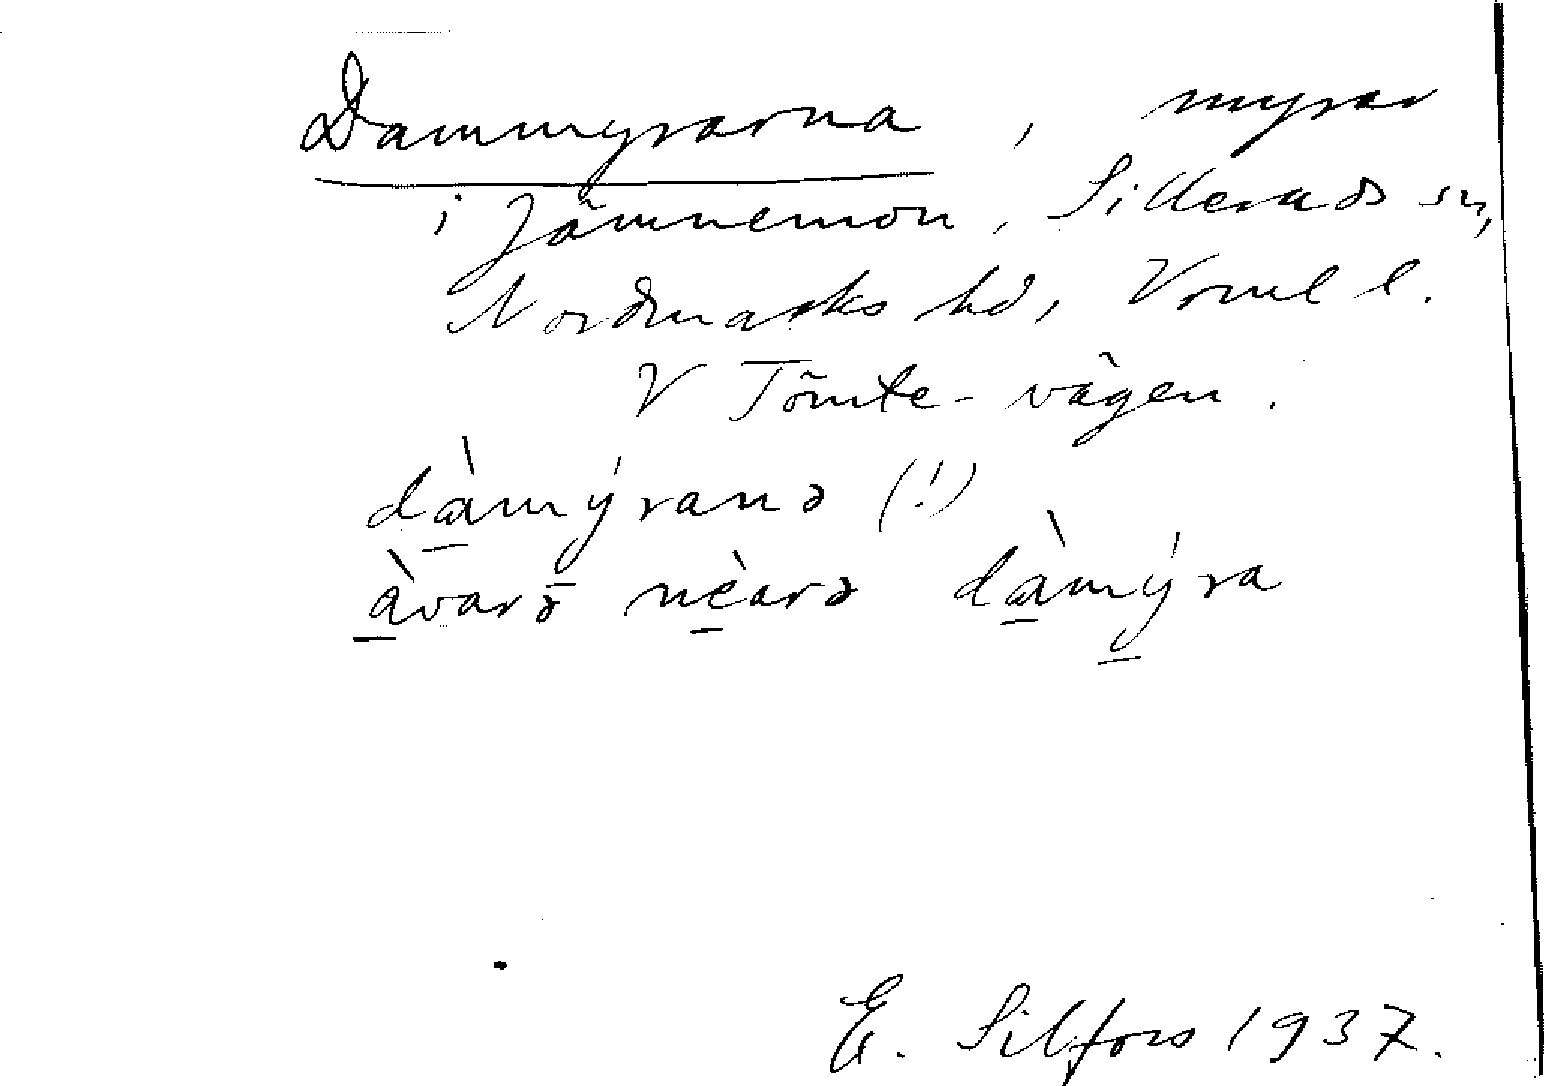 Dammyrarna, myrar
i Jämnemon, Silleruds sn,
Nordmarks hd, Vrml l.
V Tömte-vägen.
dàmýranə (!)
àvarə nèarə dàmýra
E. Silfors 1937.